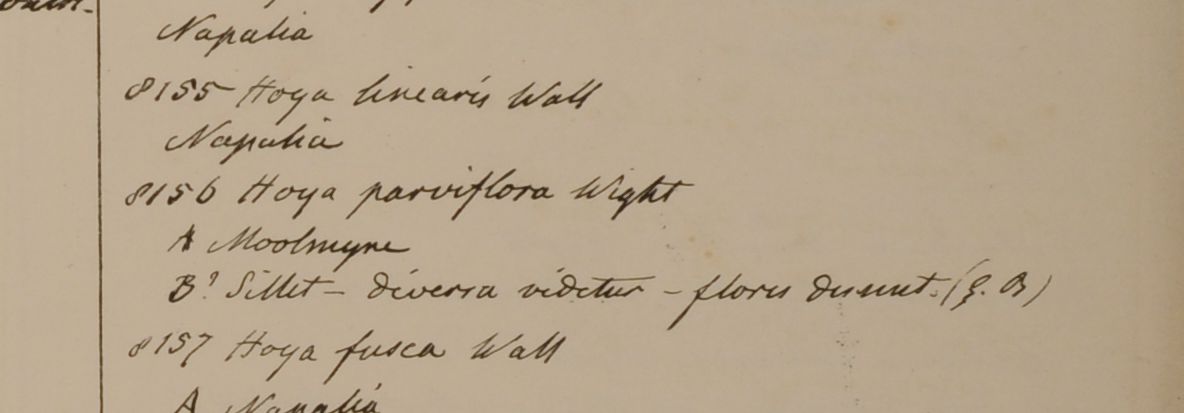 Napalia
8155 Hoya linearis Wall
Napalia
8156 Hoya parviflora Wight
A Moolmyne
B? Sillet – diversa videtur – flores desunt. (G. B)
8157 Hoya fusca Wall
A Napalia